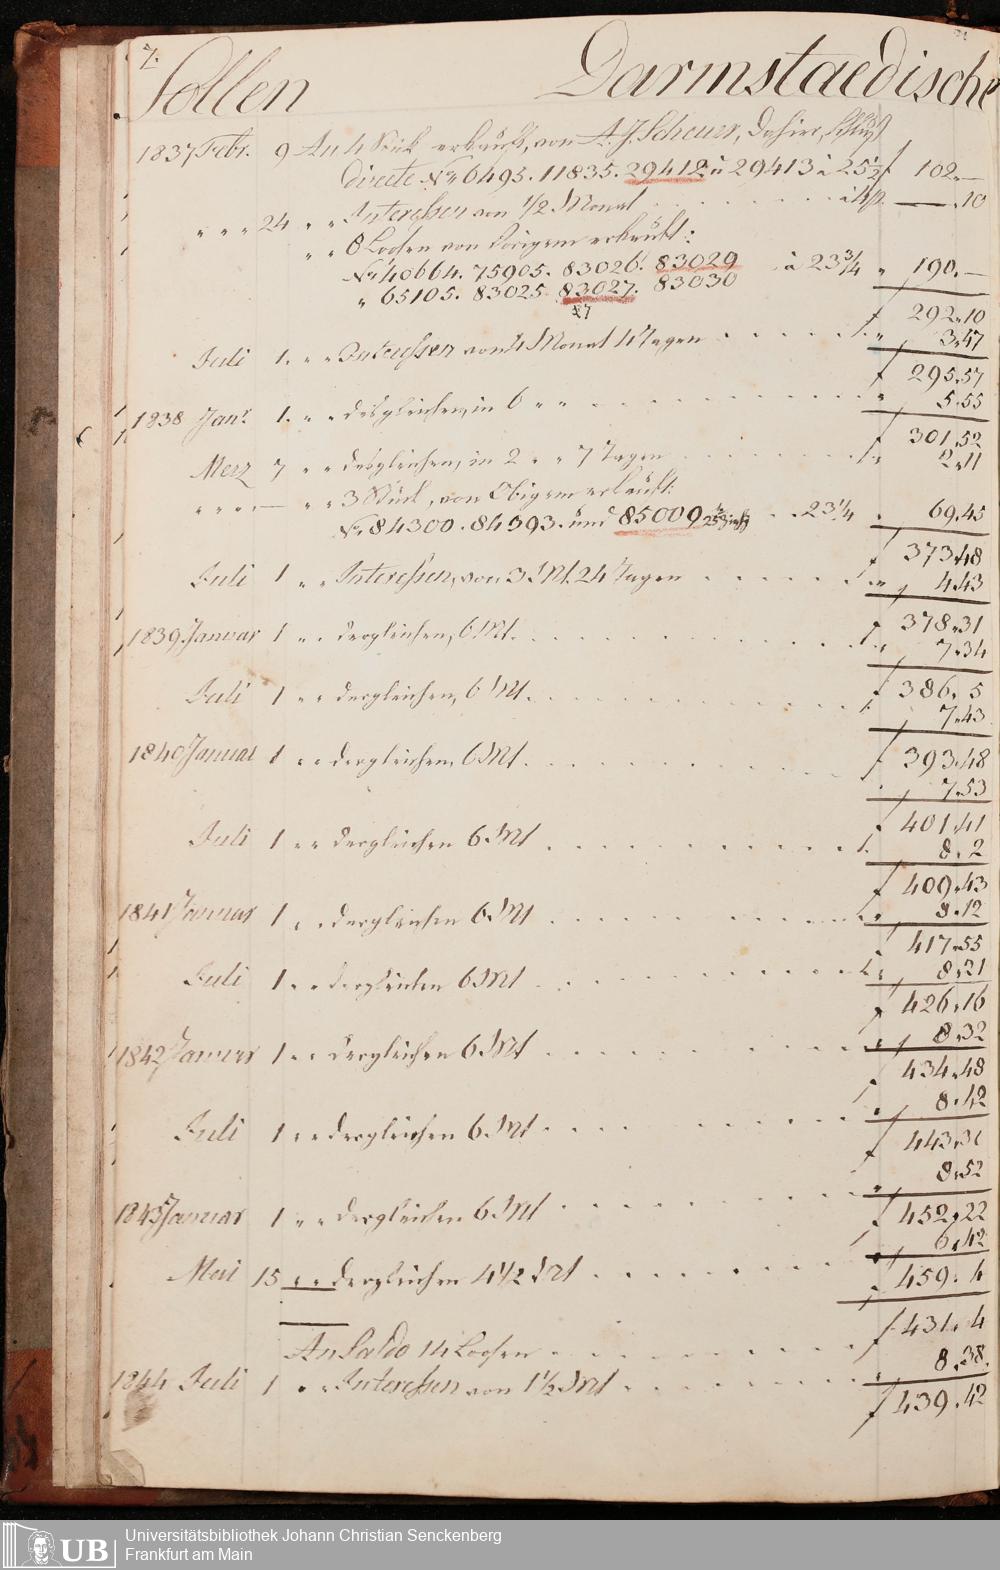 7.
Sollen Darmstaedische
1837 Febr. 9 An 4 Stück erkauft, von A. J. Scheuer, dahier,
directe No 6495. 11835. 29412 u 29413 à 25½ f 102.—
" " " 24 " " Interessen von ½ Monat . . . . . — . 10
" " 8 Loosen von Vorigem erkauft:
No 40664. 75905. 83026. 83029 . à 23¾ " 190.—
" 65105. 83025. 83027. 83030
27
f 292.10
Juli 1. " " Interessen von 4 Monat 4 Tagen . . . . . 3.47
f 295.57
1838 Janr 1. " " desgleichen, in 6 " " . . . . . 5.55
f 301.52
Merz 7 " " desgleichen, in 2 " " 7 Tagen . . . . . 2.11
" " " — " " 3 Stück, von Obigem erkauft:
No 84300. 84393. und 85009 . . 23¼ . 69.45
f 373.48
Juli 1 " " Interessen, von 3 Mt. 24 Tagen . . . . . 4.43
f 378.31
1839 Januar 1 " " dergleichen, 6 Mt. . . . . . 7.34
f 386. 5
Juli 1 " " dergleichen, 6 Mt. . . . . . 7.43
f 393.48
1840 Januar 1 " " dergleichen 6 Mt. . . . . .
7.53
f 401.41
Juli 1 " " dergleichen 6 Mt . . . . . 8. 2
f 409.43
1841 Januar 1 " " dergleichen 6 Mt . . . . . 8.12
f 417.55
Juli 1 " " dergleichen 6 Mt . . . . . 8.21
f 426.16
8.32
1842 Januar 1 " " dergleichen 6 Mt . . . . .
f 434.48
8.42
Juli 1 " " dergleichen 6 Mt . . . . .
f 443.30
8.52
1843 Januar 1 " " dergleichen 6 Mt . . . . . f 452.22
6.42
Mai 15 " " dergleichen 4½ Mt . . . . . f 459. 4
An Saldo 14 Loosen . . . . . f 431. 4
8.38.
1844 Juli 1 " " Interessen von 1½ Mt . . . . .
f 439.42
UB Universitätsbibliothek Johann Christian Senckenberg
Frankfurt am Main